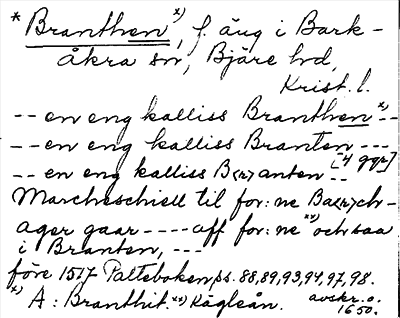 * Branthen x), f. äng i Bark-
åkra sn, Bjäre hd,
Krist. l.
-- en eng kalliss Branthen x) --
-- en eng kalliss Branten ---
-- en eng kalliss B(r)anten -- [4 ggr]
Marcheschiell til for: ne Ba(r)ch-
ager gaar ---- aff for: ne xx) och saa
i Branten, ---
före 1517 Palteboken, ss. 88, 89, 93, 94, 97, 98.
x) A: Branthit. xx) Kägleån. avskr. o.
1650.